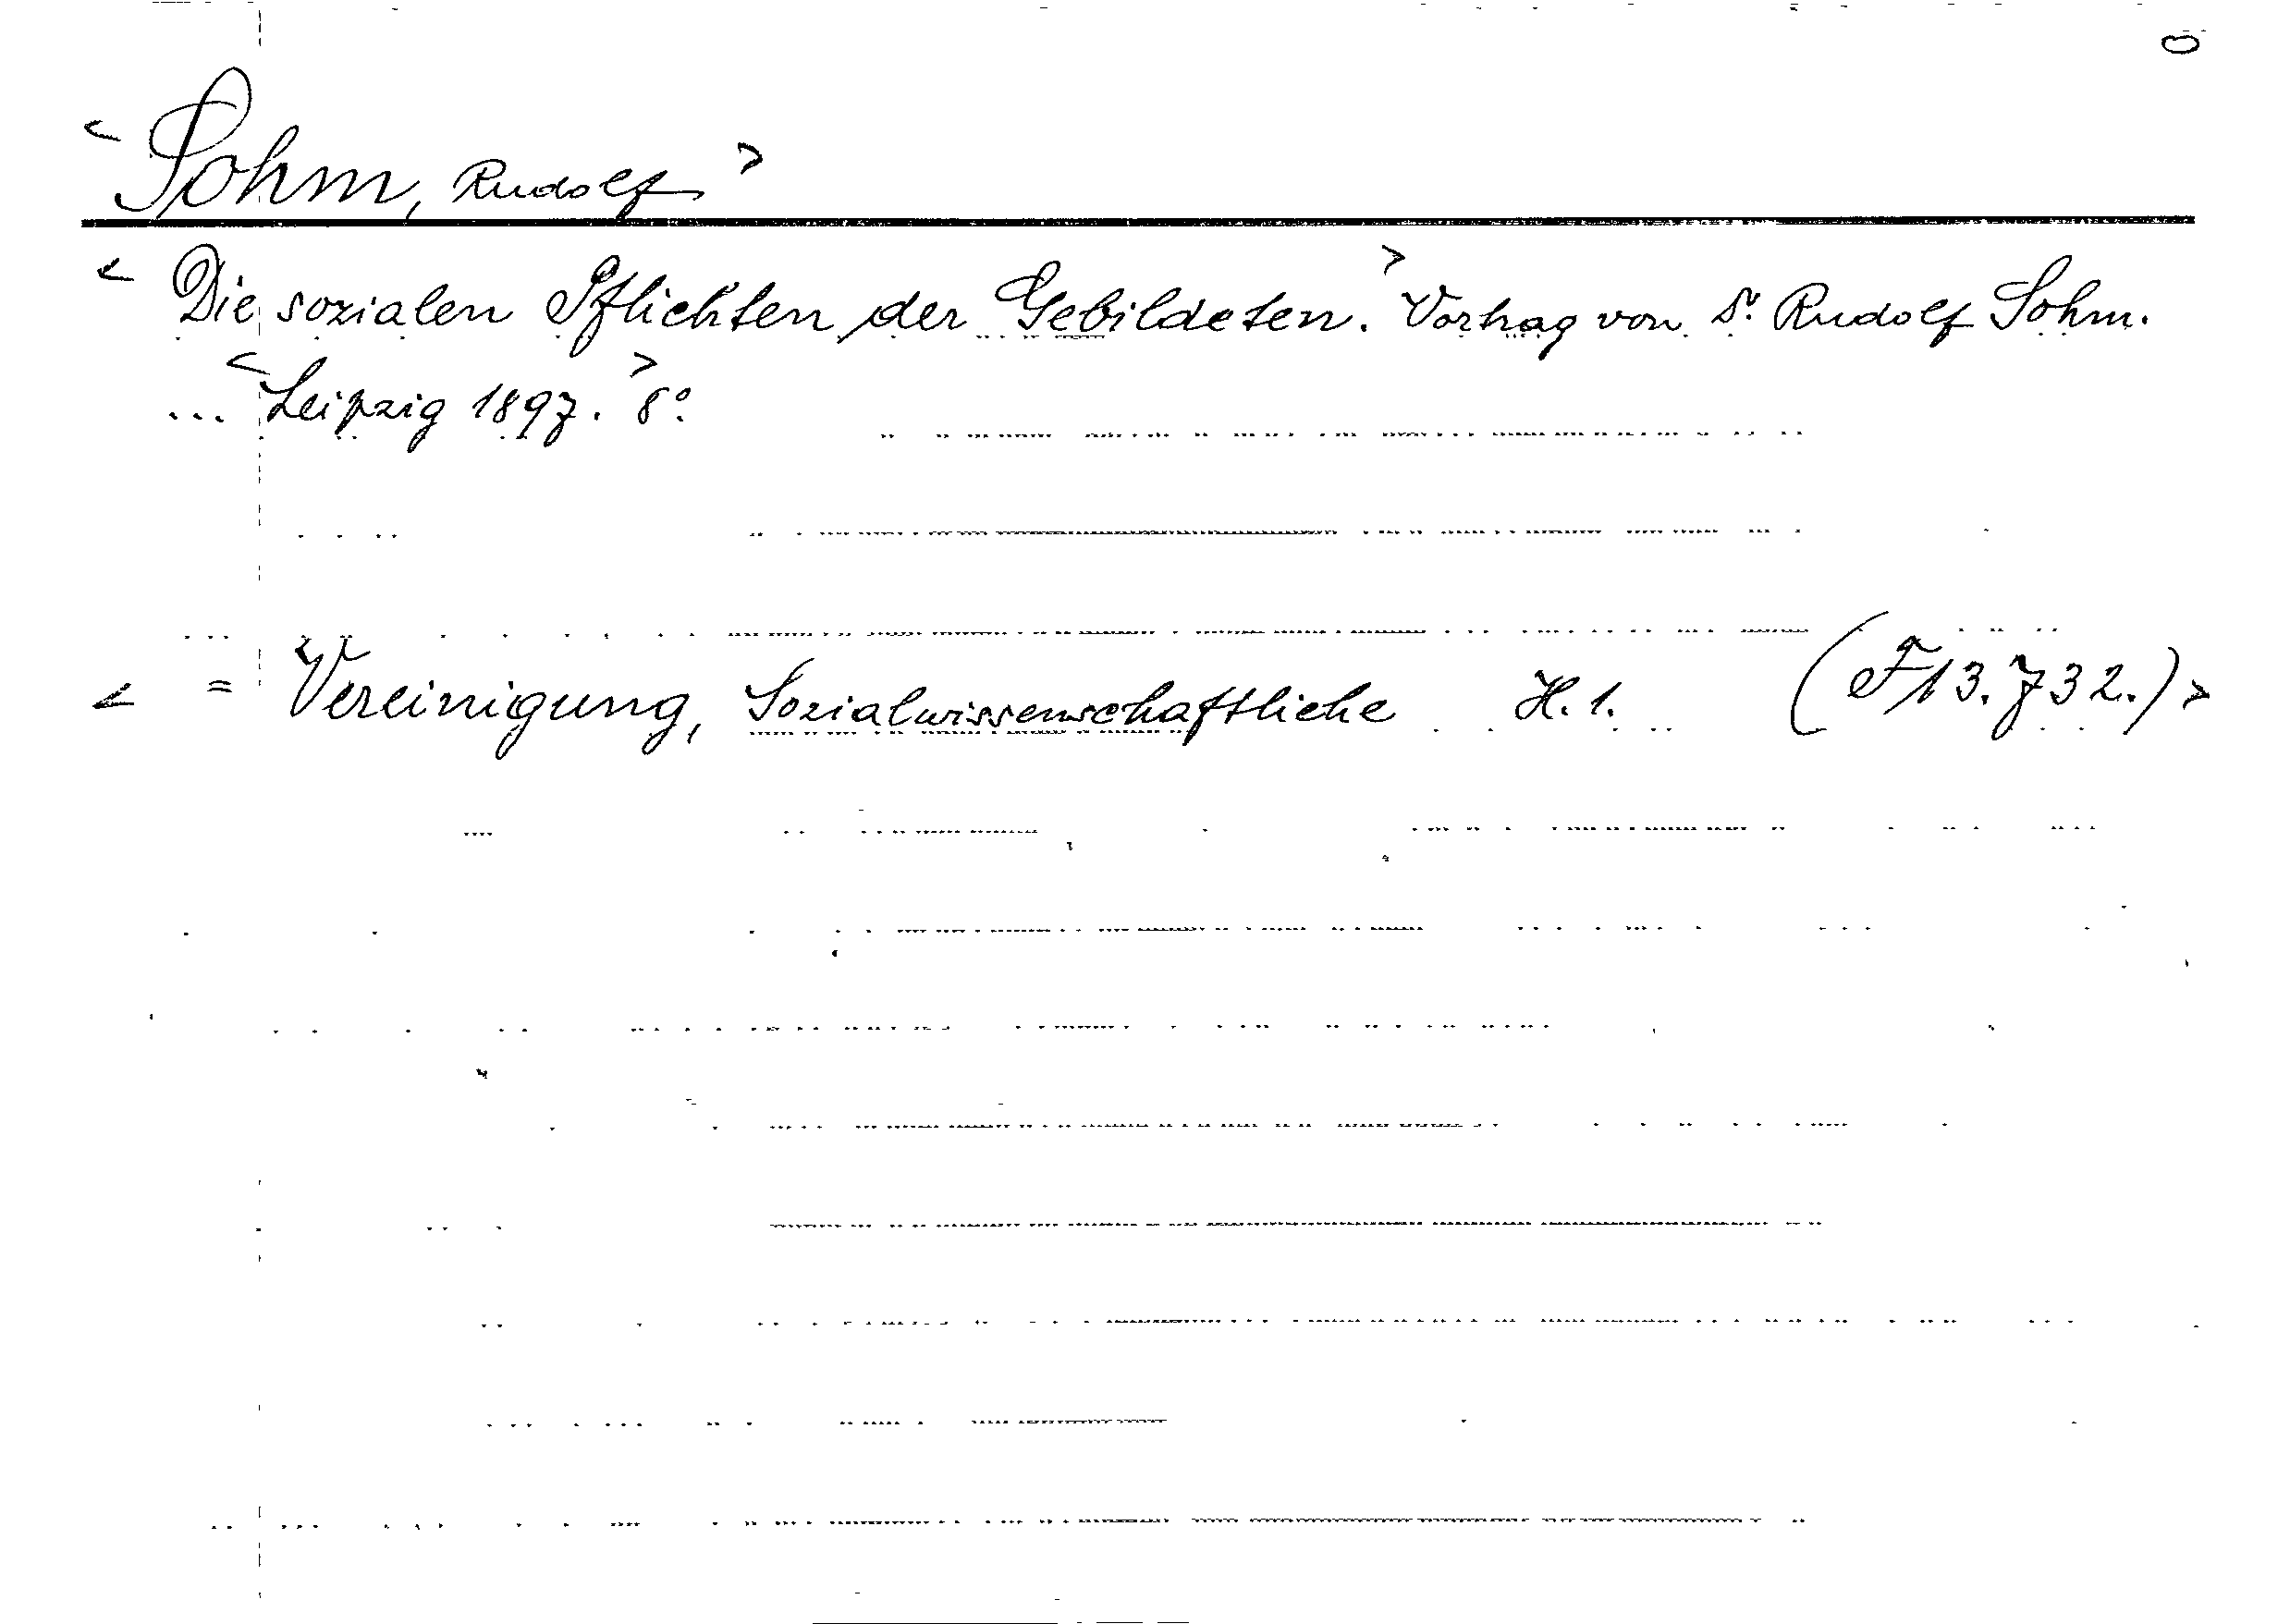 < Sohm, Rudolf >
< Die sozialen Pflichten der Gebildeten. > Vortrag von Dr. Rudolf Sohm.
... < Leipzig 1897. > 8°.
< = Vereinigung, Sozialwissenschaftliche H. 1. (F13.732.) >